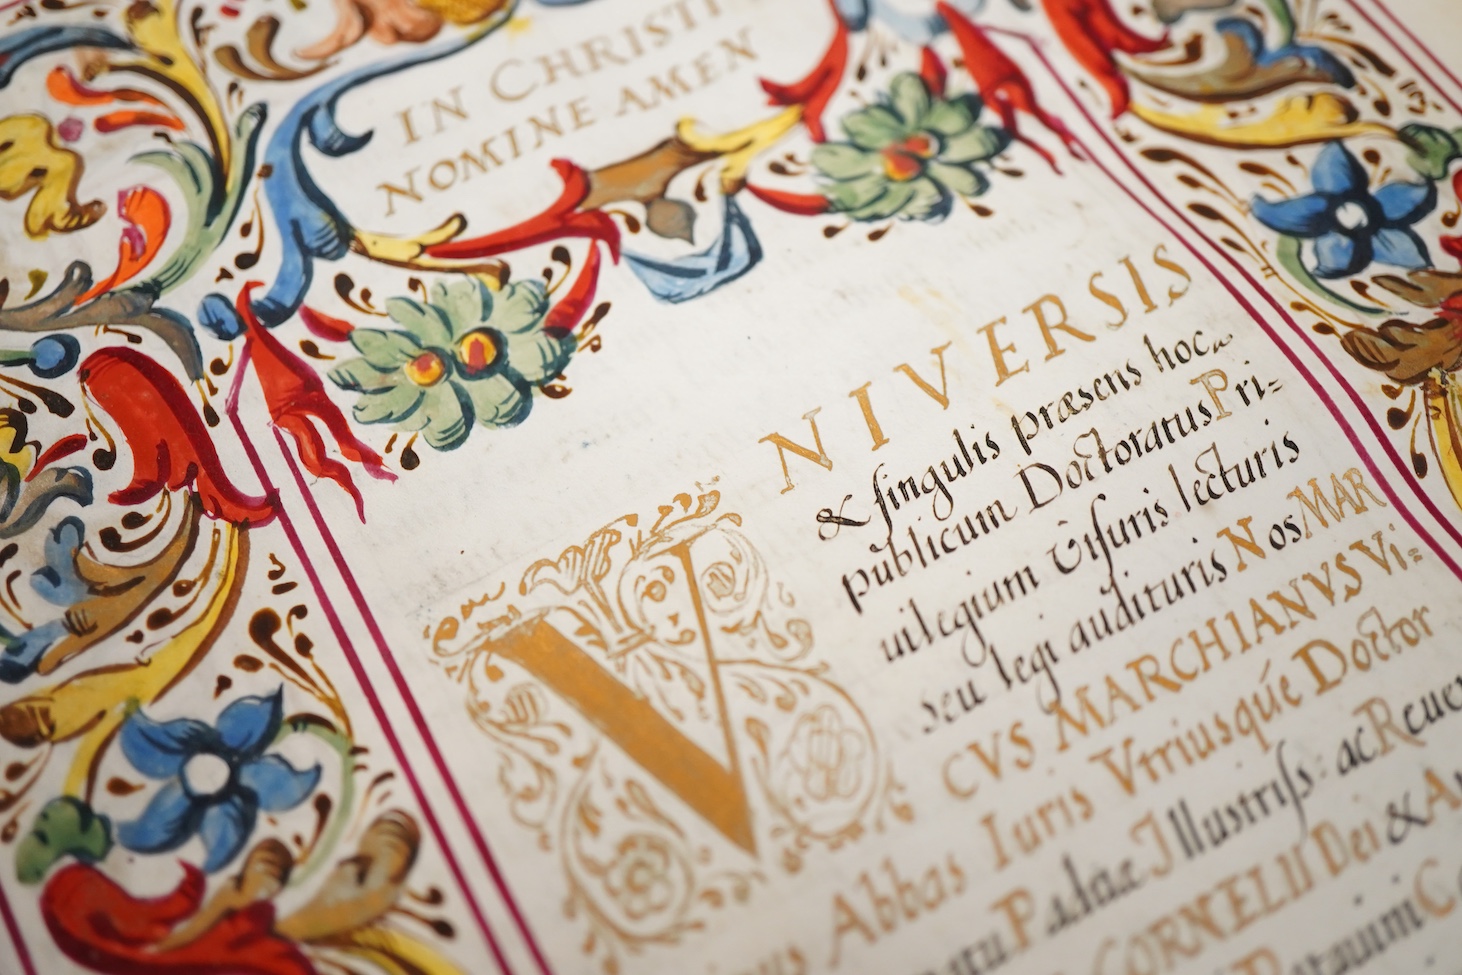 IN CHRISTI
NOMINE AMEN
VNIVERSIS
& singulis præsens hoc
publicum Doctoratus Pri=
uilegium visuris lecturis
seu legi audituris Nos MAR
CVS MARCHIANVS Vi=
Abbas Iuris Vtriusqúe Doctor
Paduæ Illustriss: ac
CORNELII Dei &